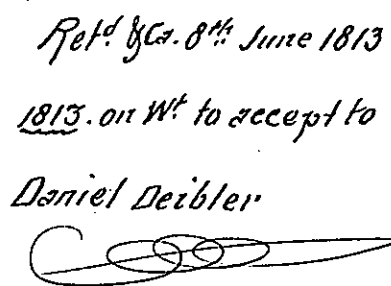 Ret.d &Ca. 8th June 1813
1813. on Wt. to accept to
Daniel Deibler